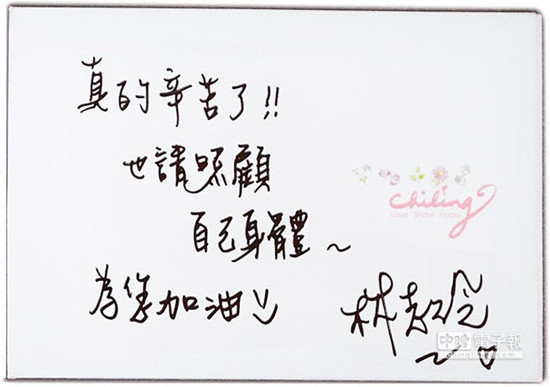 真的辛苦了!!
也請照顧
自己身體~
為您加油
chiling
Love Share Hope
林志玲
中時電子報
chinatimes.com